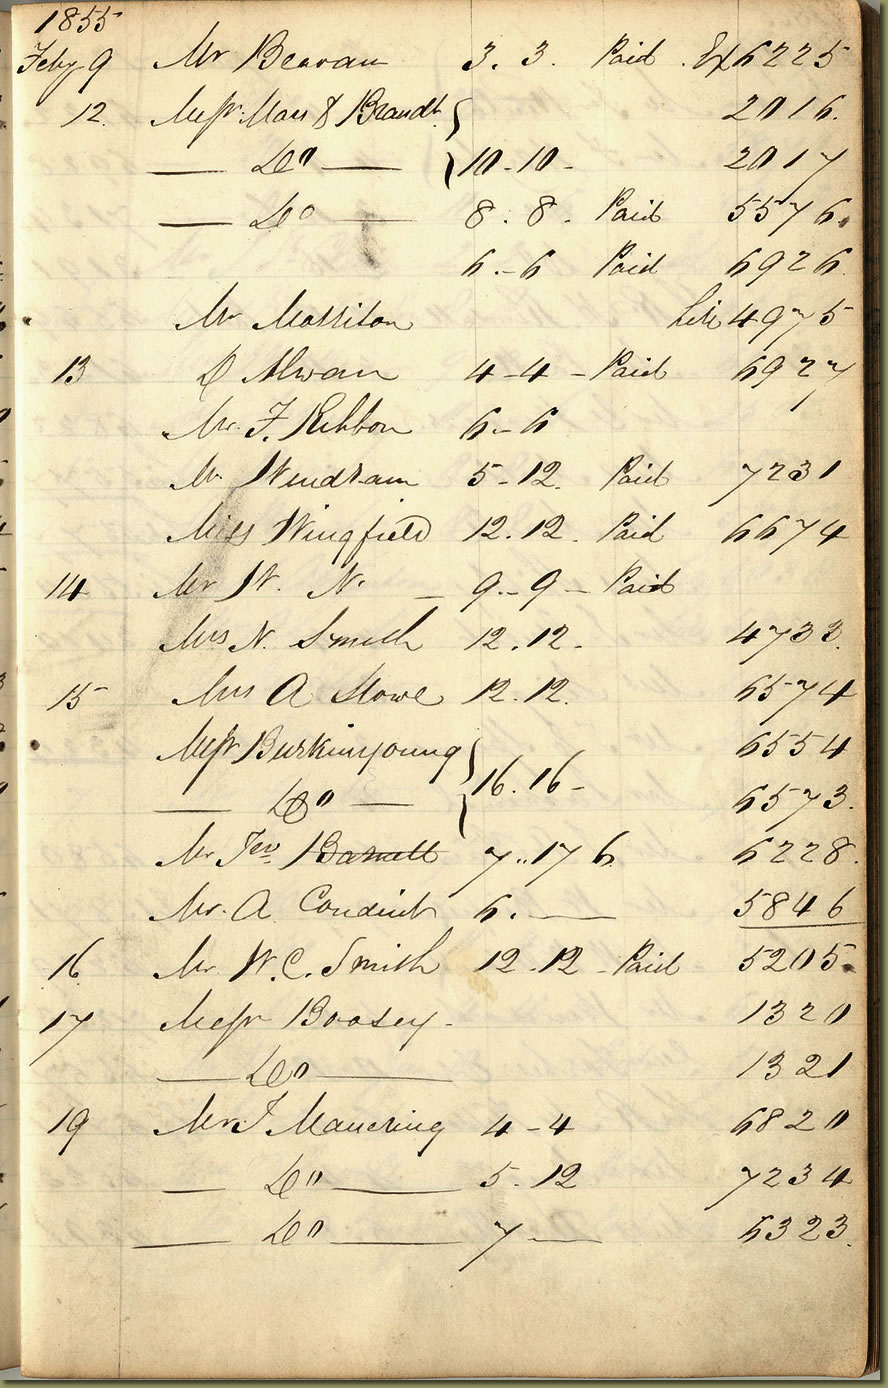 1855
Feby 9 Mr Beavan 3. 3. Paid Ex 6225
12. Messrs & Brandt 2016.
— Do — 10-10- 2017
— Do — 8. 8. Paid 5576.
6.-6 Paid 6926.
Mr 4975
13 4-4- Paid 6927
Mr. F. Ribbon 6.-6
Mr Windham 5-12. Paid 7231
Miss Wingfield 12.12. Paid 6674
14 Mr W. N. — 9.-9- Paid
Mrs N. Smith 12.12. 4733.
15 Mrs A Stowe 12.12. 6574
Messrs Burkinyoung 6554
— Do — 16.16- 6573.
Mr Jno Barrett 7..17 6 6228.
Mr. A Conduit 6. — 5846
16 Mr W. C. Smith 12.12- Paid 5205.
17 Messrs Boosey- 1320
— Do — 1321
19 Mr J Manering 4-4 6820
— Do — 5.12 7234
— Do — 7 — 6323.